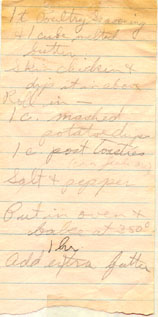 1 t Poultry Seasoning
& 1 cube melted
butter
Skin chicken &
dip at above
Roll in —
1 c. mashed
potato chips
1 c post toasties
Salt & pepper
Put in oven &
bake at 350°
1 hr
Add extra butter